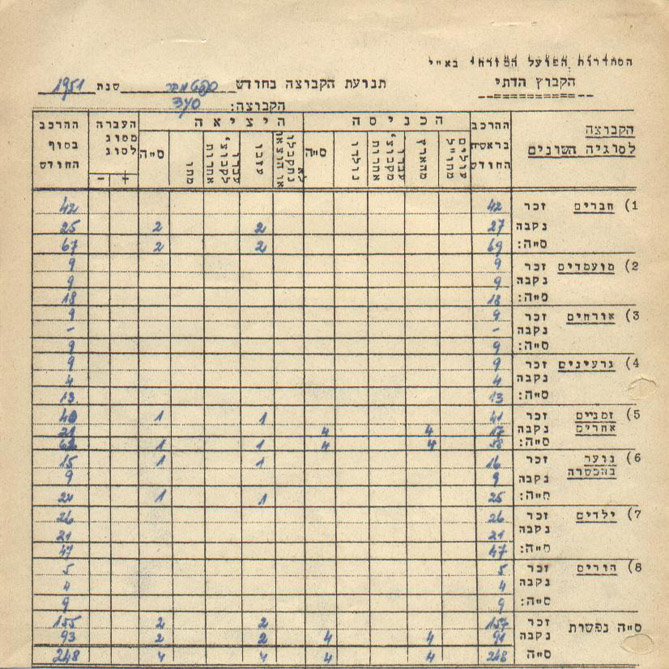 הסתדרות הפועל המזרחי בא"י
הקבוץ הדתי
תנועת הקבוצה בחודש ספטמבר שנת 1951
הקבוצה:
הקבוצה לסוגיה השונים | ההרכב בראשית החודש | הכניסה | היציאה | העברה מסוג לסוג | ההרכב בסוף החודש
עולים מחו"ל | מהארץ | עברו מקבוצי' אחרות | נולדו | ס"ה | לא נתקבלו או הוצאו | עזבו | עברו לקבוצי' אחרות | מתו | ס"ה | + | -
1) חברים זכר 42 42
נקבה 27 2 2 25
ס"ה: 69 2 2 67
2) מועמדים זכר 9 9
נקבה 9 9
ס"ה: 18 18
3) אורחים זכר 9 9
נקבה - -
ס"ה: 9 9
4) גרעינים זכר 9 9
נקבה 4 4
ס"ה: 13 13
5) זמניים אחרים זכר 41 1 1 40
נקבה 17 4 4 21
ס"ה: 58 4 4 1 1
6) נוער בהכשרה זכר 16 1 1 15
נקבה 9 9
ס"ה: 25 1 1 24
7) ילדים זכר 26 26
נקבה 21 21
ס"ה: 47 47
8) הורים זכר 5 5
נקבה 4 4
ס"ה: 9 9
ס"ה נפשות זכר 157 2 2 155
נקבה 91 4 4 2 2 93
ס"ה 248 4 4 4 4 248